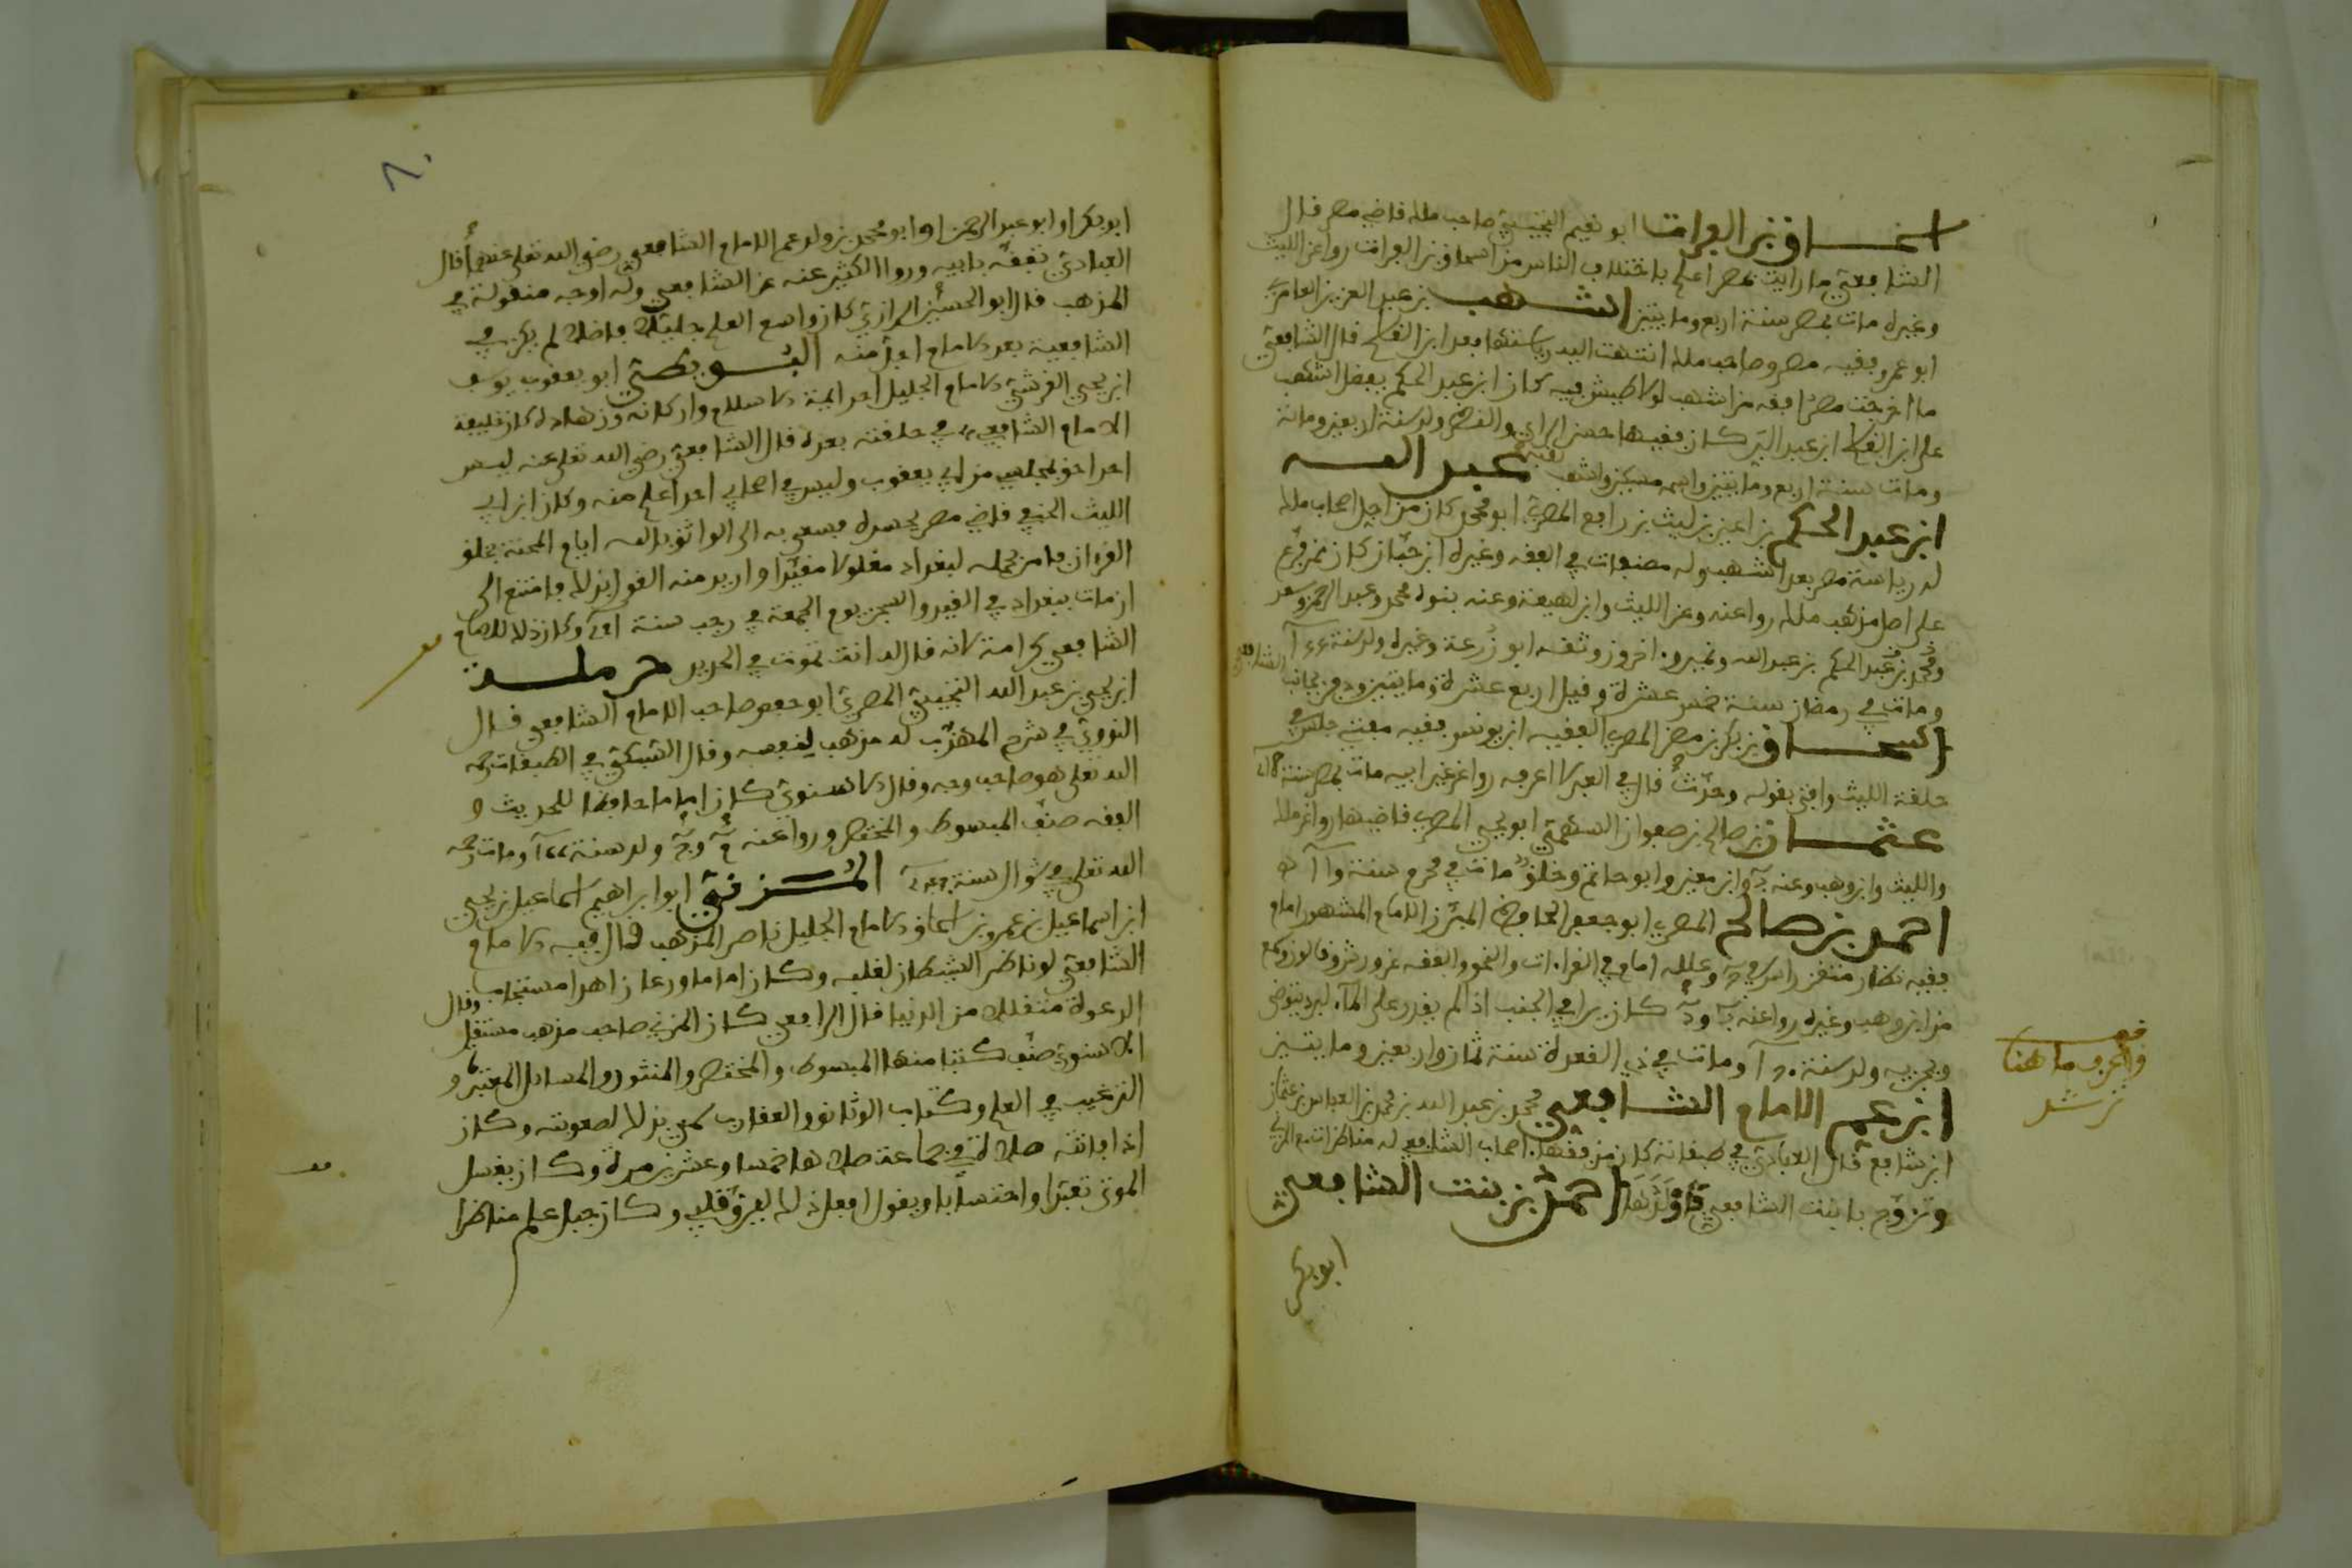 اسحاق بن الفرات ابو نعيم التجيبي صاحب مالك قاضي مصر قال
الشافعي ما رايت بمصر اعلم باختلاف الناس من اسحاق بن الفرات روا عن الليث
وغيره مات بمصر سنة اربع ومايتين اشهب بن عبد العزيز العامري
ابو عمرو فقيه مصر وصاحب مالك انتهت اليه رياستها بعد ابن القاسم قال الشافعي
ما اخرجت مصر افقه من اشهب لولا طيش فيه كان ابن عبد الحكم يفضل اشهب
على ابن القاسم ابن عبد البر كان فقيها حسن الراي والنظر ولد سنة اربعين ومائة
ومات سنة اربع ومايتين واسمه مسكين واشهب لقبه عبد الله
ابن عبد الحكم بن اعين بن ليث بن رافع المصري ابو محمد كان من اجل اصحاب مالك
له رياسة مصر بعد اشهب وله مصنفات في الفقه وغيره ابن حبان كان ممن فرع
على اصل مذهب مالك روا عنه وعن الليث وابن لهيعة وعنه بنوه محمد وعبد الرحمن وسعد
ومحمد بن عبد الحكم بن عبد الله ونمير و. اخرون وثقه ابو زرعة وغيره ولد سنة
ومات في رمضان سنة خمس عشرة وقيل اربع عشرة ومايتين ودفن بجانب الشافعي
اسحاق بن بكر بن مضر المصري الفقيه ابن يونس فقيه مفتي جلس في
حلقة الليث وافتى بقوله وحدث قال في العبر لا اعرفه روا عن غير ابيه مات بمصر سنة
عثمان بن صالح بن صفوان السهمي ابو يحيى المصري قاضيها روا عن مالك
والليث وابن وهب وعنه وابن معين وابو حاتم وخلق مات في محرم سنة
احمد بن صالح المصري ابو جعفر الحافظ المبرز الامام المشهور امام
فقيه نظار متقن راس في وعلله امام في القراءات والنحو والفقه
من ابن وهب وغيره روا عنه كان يرا في الجنب اذا لم يقدر على الماء لبرد يتوضى
ويجزيه ولد سنة ومات في ذي القعدة سنة ثمان واربعين ومايتين
ابن عم الامام الشافعي محمد بن عبد الله بن محمد بن العباس بن عثمان
ابن شافع قال العبادي في طبقاته كان من فقهاء اصحاب الشافعي له مناظرات مع المزني
وتزوج بابنت الشافعي فاولدها احمد بن بنت الشافعي
ابو بكر
قف
واعرف ما هنا
ترشد
ابو بكر او ابو عبد الرحمن او ابو محمد بن ولد عم الامام الشافعي رضي الله تعلى عنهما قال
العبادي تفقه بابيه وروا الكثير عنه عن الشافعي وله اوجه منقولة في
المذهب قال ابو الحسين الرازي كان واسع العلم جليلا فاضلا لم يكن في
الشافعية بعد الامام اجل منه البويطي ابو يعقوب يوسف
ابن يحيى القرشي الامام الجليل احد ايمة الاسلام واركانه وزهاده كان خليفة
الامام الشافعي في حلقته بعده قال الشافعي رضي الله تعلى عنه ليس
احد احق بمجلسي من ابي يعقوب وليس في اصحابي احد اعلم منه وكان ابن ابي
الليث الحنفي قاضي مصر يحسده فسعى به الى الواثق بالله ايام المحنة بخلق
القران فامر بحمله لبغداد مغلولا مقيدا واريد منه القول بذلك فامتنع الى
ان مات ببغداد في القيد والسجن يوم الجمعة في رجب سنة وكان ذلك للامام
الشافعي كرامة لانه قال له انت تموت في الحديد حرملة
ابن يحيى بن عبد الله التجيبي المصري ابو حفص صاحب الامام الشافعي قال
النووي في شرح المهذب له مذهب لنفسه وقال السبكي في الطبقات رحمه
الله تعلى هو صاحب وجه وقال الاسنوي كان اماما حافظا للحديث و
الفقه صنف المبسوط والمختصر وروا عنه ولد سنة ومات رحمه
الله تعلى في شوال سنة المزني ابو ابراهيم اسماعيل بن يحيى
ابن اسماعيل بن عمرو بن اسحاق الامام الجليل ناصر المذهب قال فيه الامام
الشافعي لو ناظر الشيطان لغلبه وكان اماما ورعا زاهدا مستجاب
الدعوة متقللا من الدنيا قال الرافعي كان المزني صاحب مذهب مستقل وقال
الاسنوي صنف كتبا منها المبسوط والمختصر والمنثور والمسائل المعتبرة و
الترغيب في العلم وكتاب الوثائق والعقارب سمي بذلك لصعوبته وكان
اذا فاتته صلاة في جماعة صلاها خمسا وعشرين مرة وكان يغسل
الموتى تعبدا واحتسابا ويقول افعل ذلك ليرق قلبي وكان جبل علم مناظرا